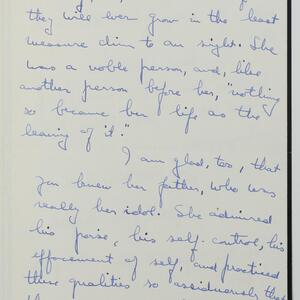 they will ever grow in the least
measure dim to our sight. She
was a noble person, and, like
another person before her, "nothing
so became her life as the
leaving of it."
I am glad, too, that
you knew her father, who was
really her idol. She admired
his poise, his self-control, his
effacement of self, and practiced
these qualities so assiduously that